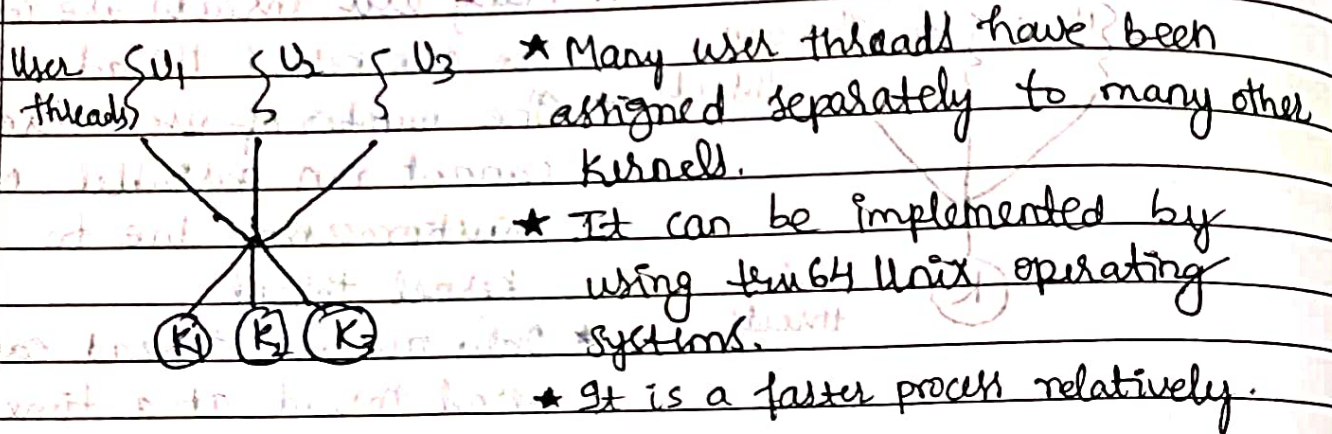 User threads } U1 } U2 } U3
★ Many user threads have been
assigned separately to many other
Kernels.
★ It can be implemented by
using tru64 Unix operating
systems.
K1 K2 K3
★ It is a faster process relatively.